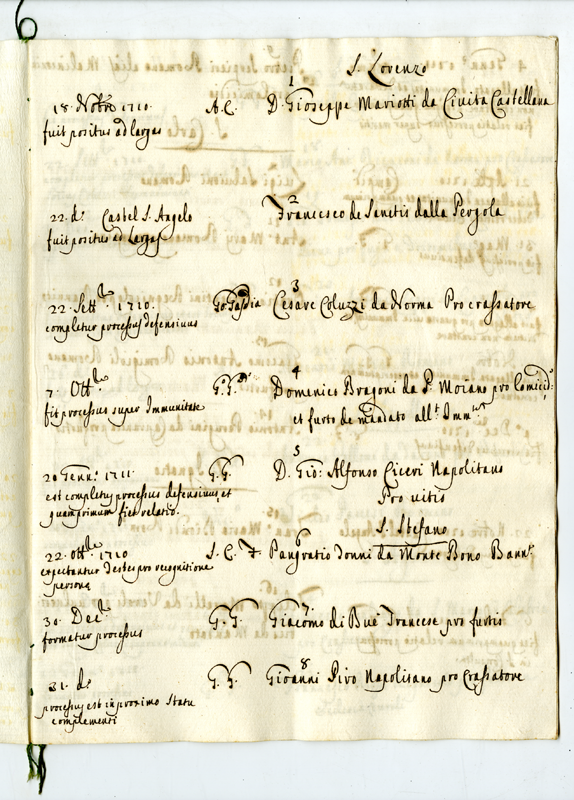 S. Lorenzo
1
18. Nobre 1710. A. C. D. Gioseppe Mariotti da Civita Castellana
fuit positus ad largas
2
22. do Castel S. Angelo Francesco de Sanctis dalla Pergola
fuit positus ad Largas
3
22. Sette 1710. Cesare Coluzzi da Norma Pro crassatore
completur processus defensivus
4
7. Otte G. G. Domenico Bragoni da Pe Moiano pro
fit processus super Immunitate et furto de mandato all
5
20 Gennro 1711. G. G. D. Gio: Alfonso Ciceri Napolitano
est completus processus defensivus, et Pro vitis
quamprimum fiet relatio.
S. Stefano
6
22. Otte 1710 S. C. Pangratio Jonni da Monte Bono
expectantur testes pro recognitione
personę
7
30. Dece G. G. Giacomo di Francese pro furtis
formatur processus
8
31. do G. G. Gioanni Pivo Napolitano pro Crassatore
processus est in proximo Statu
complementi